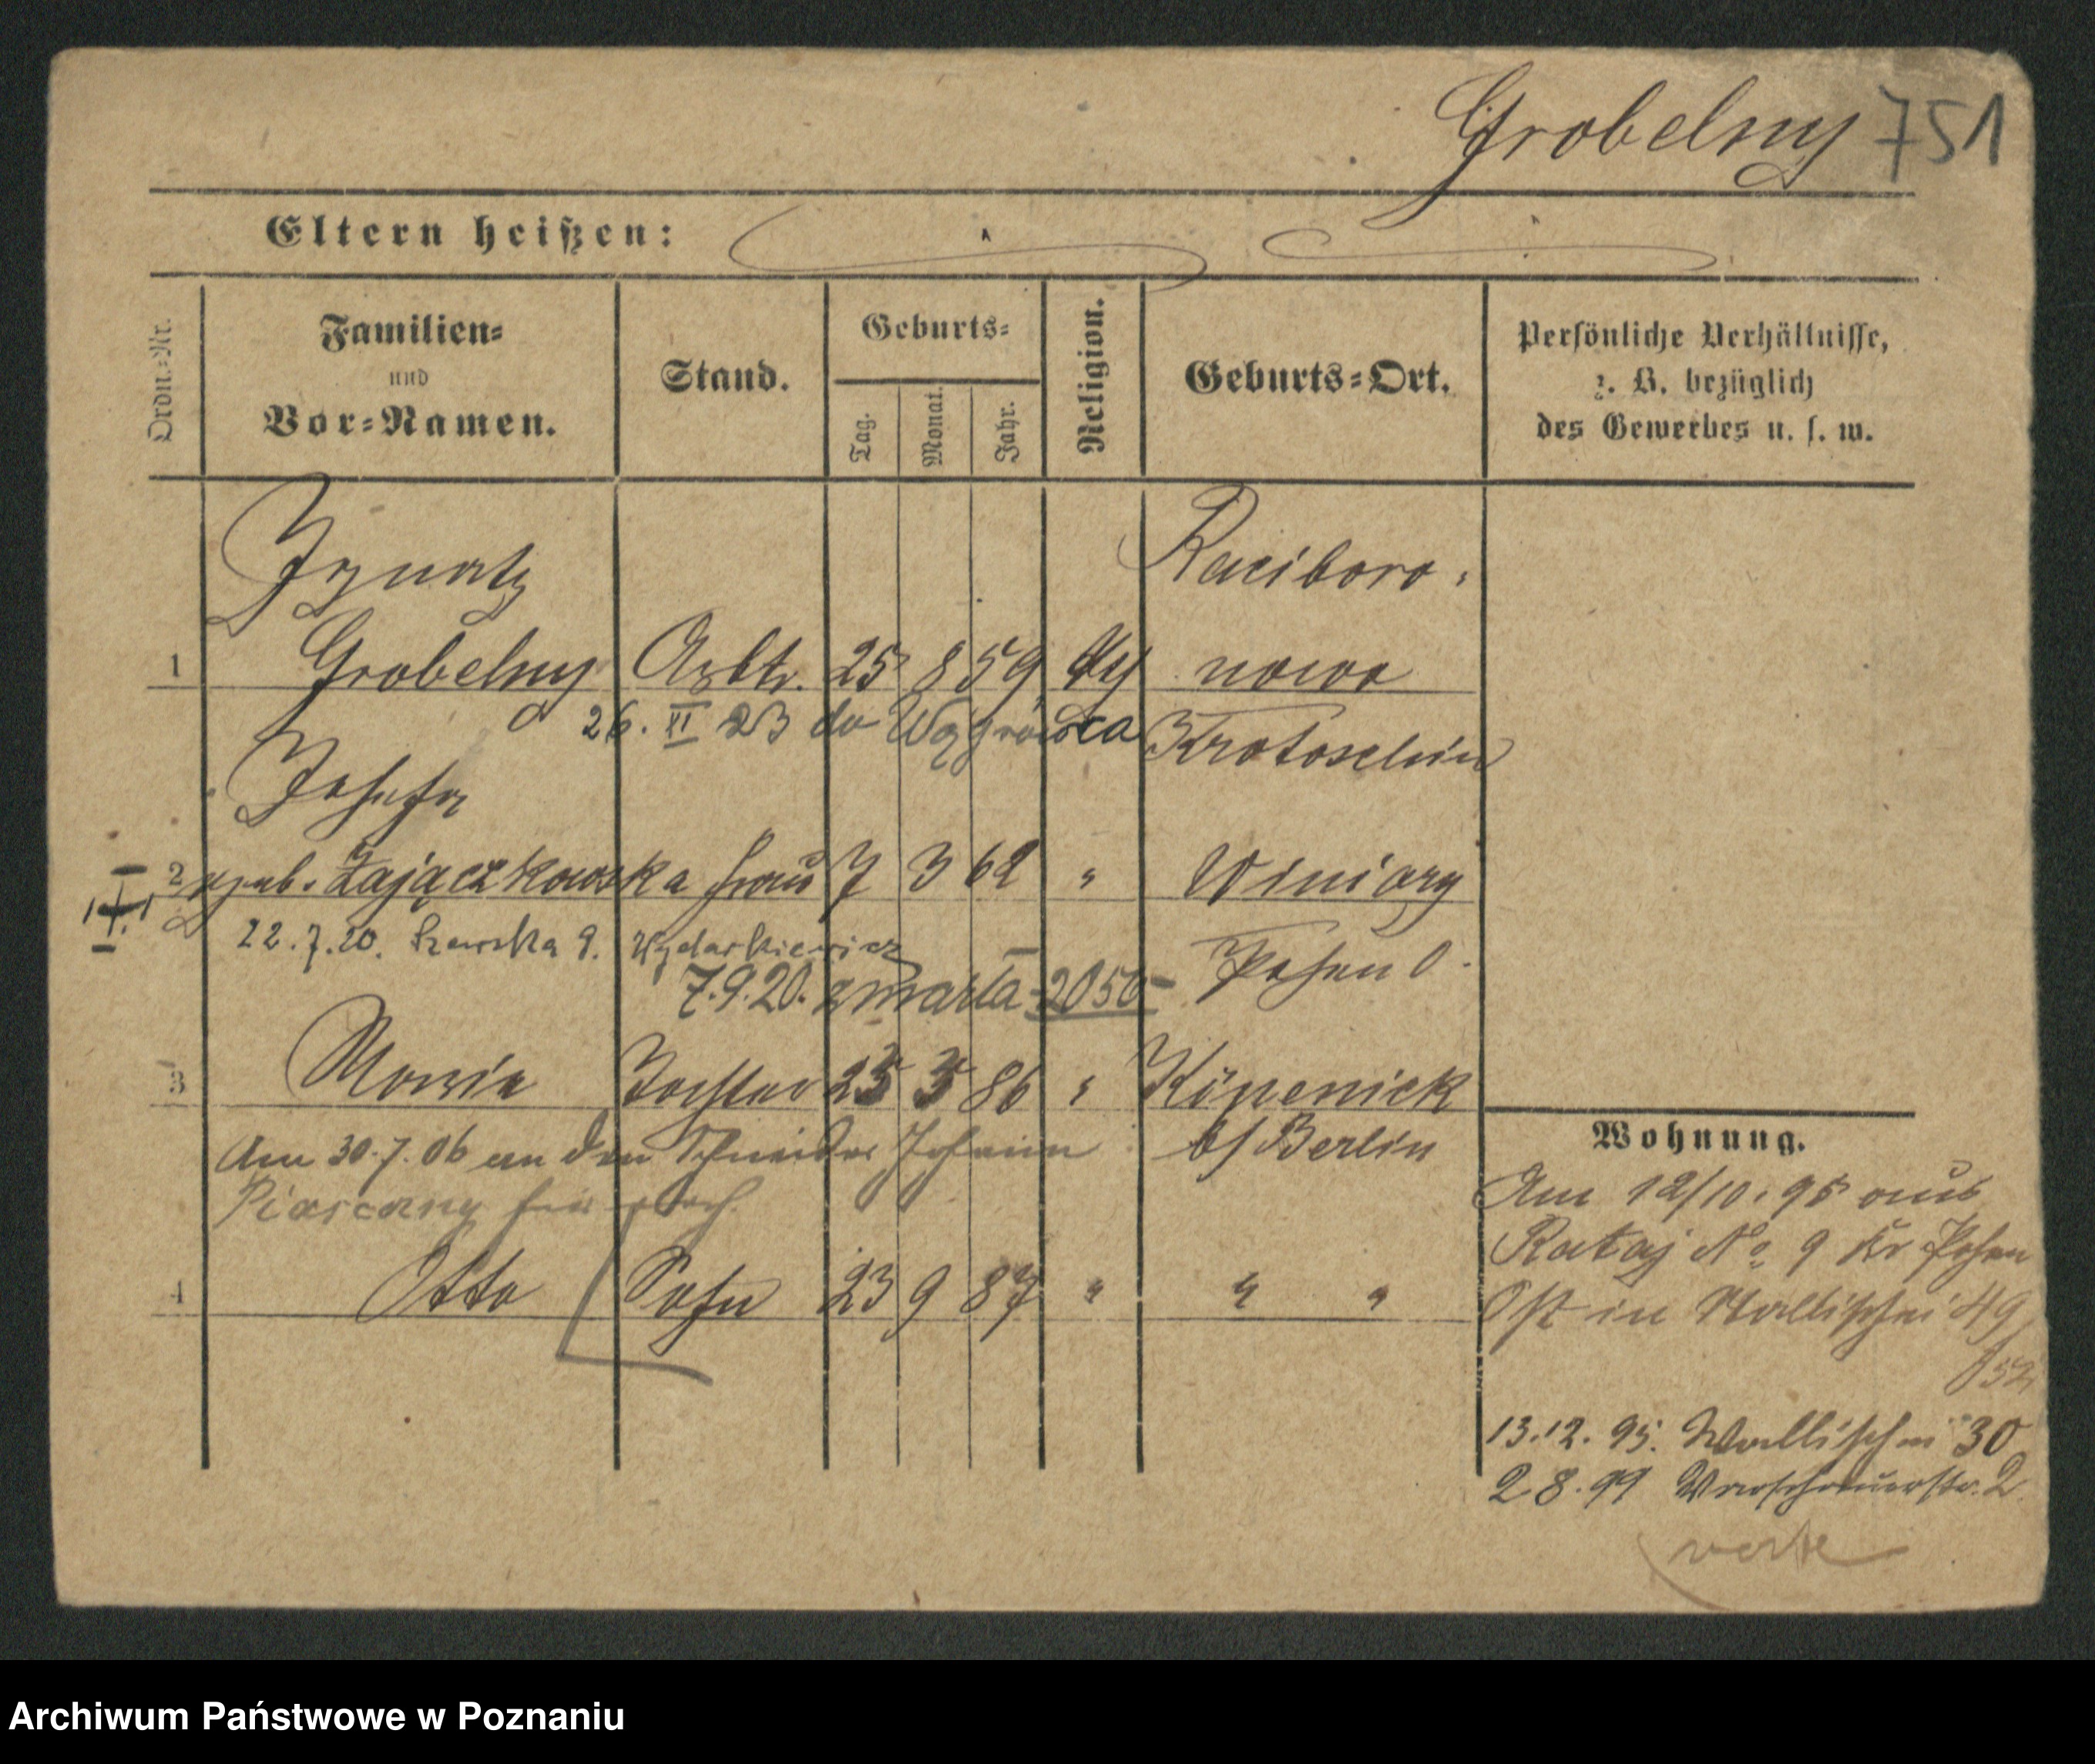 Grobelny 751
Eltern heißen:
Ordn.-Nr.
Familien-
und
Vor-Namen.
Stand.
Geburts-
Tag.
Monat.
Jahr.
Religion.
Geburts-Ort.
Persönliche Verhältnisse,
z. B. bezüglich
des Gewerbes u. s. w.
Ignatz Raciboro-
1 Grobelny Arbtr. 25 8 59 nowo
26. XI 23 do Wągrówca Krotoschin
Josefa
2 geb. Zajączkowska Frau 7 3 62 " Winiary
22.7.20. Szewska 9. Posen O.
7.9.20. zmarła 2050
3 Marie Tochter 25 3 86 " Köpenick
Am 30.7.06 an den Schneider Johann b/Berlin
4 Otto Sohn 23 9 87 " " "
Wohnung.
Am 12/10. 95 aus
Rataj No 9 Kr Posen
Ost in Wallischei 49
13.12.95. Wallischei 30
2.8.99 Warschauerstr. 2
verte
Archiwum Państwowe w Poznaniu